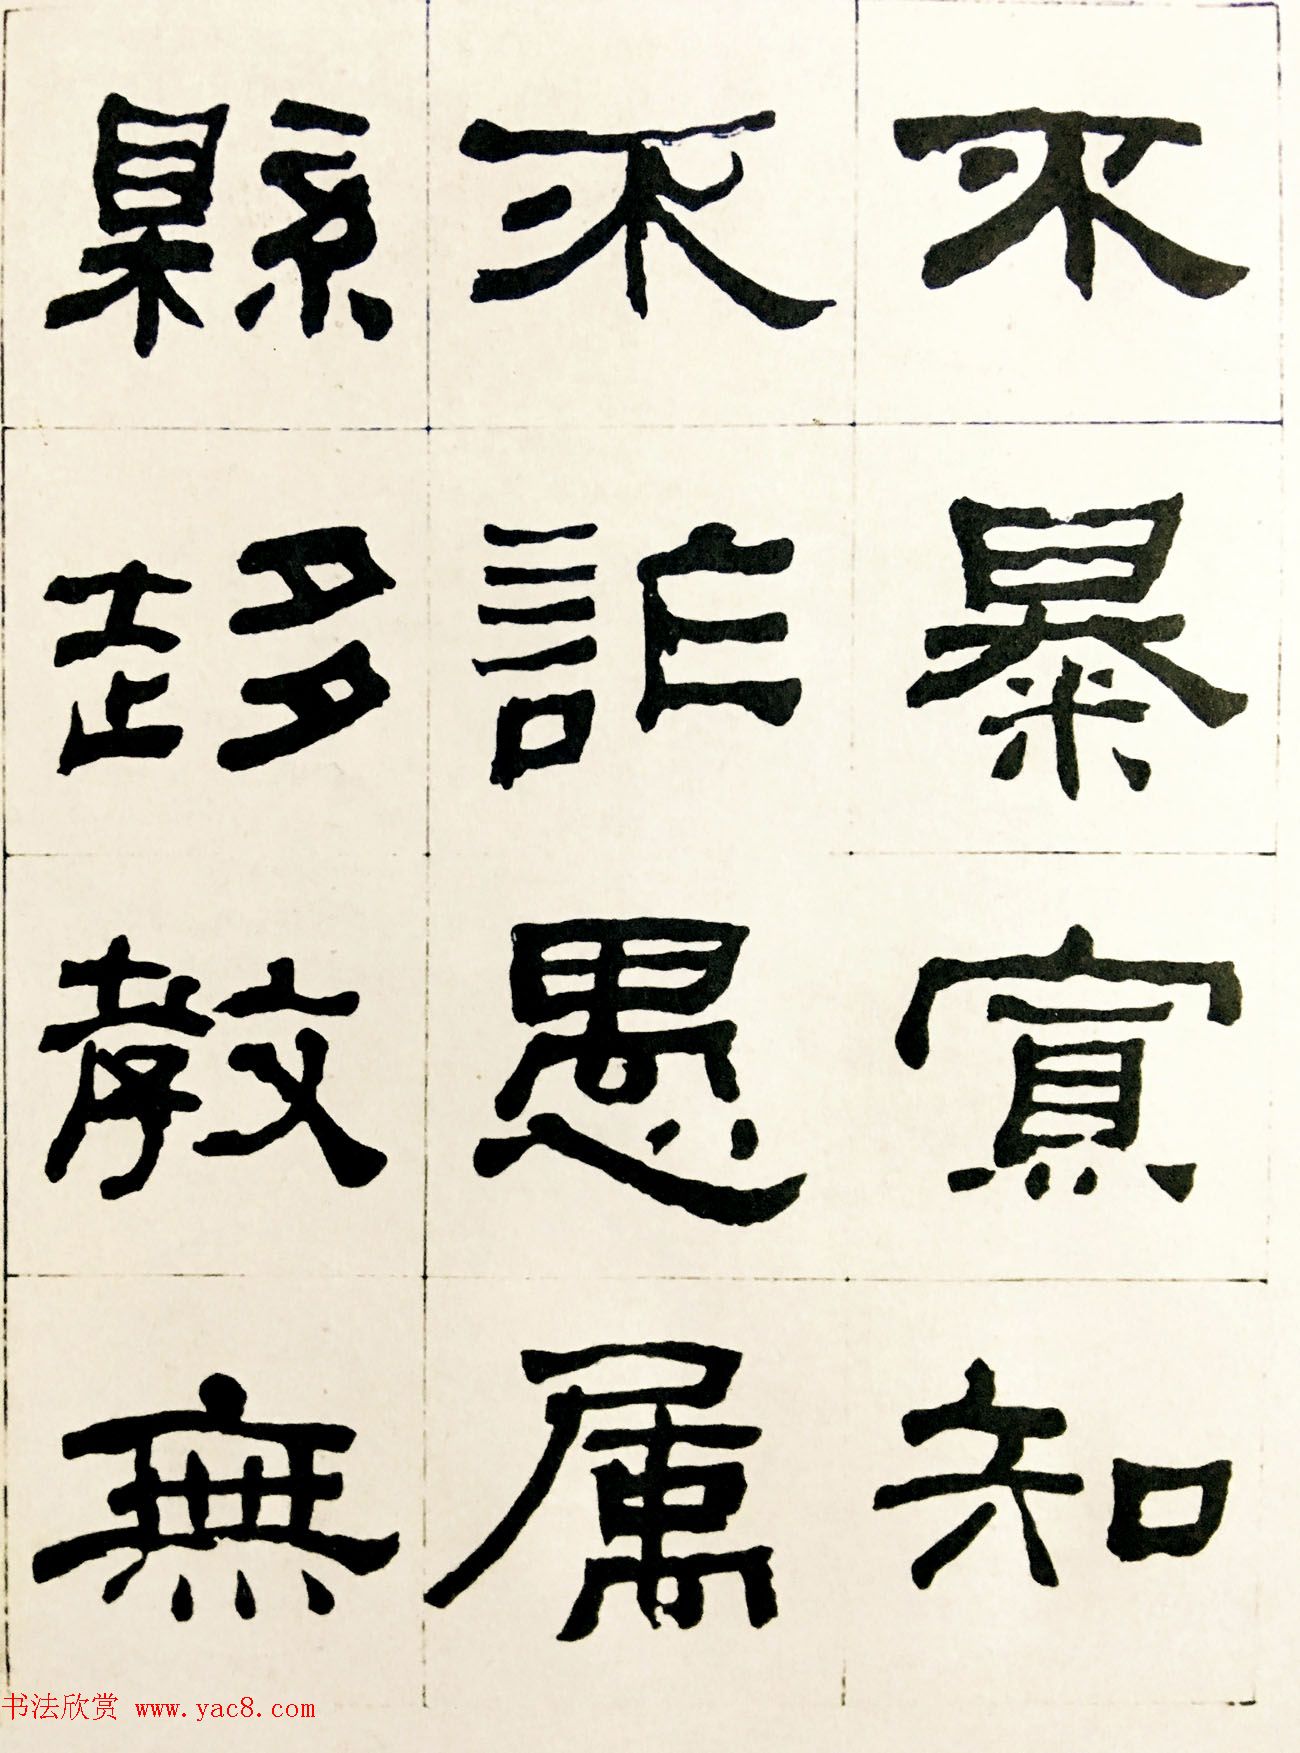 不暴寡知
不詐愚属
縣趍教無
书法欣赏 www.yac8.com